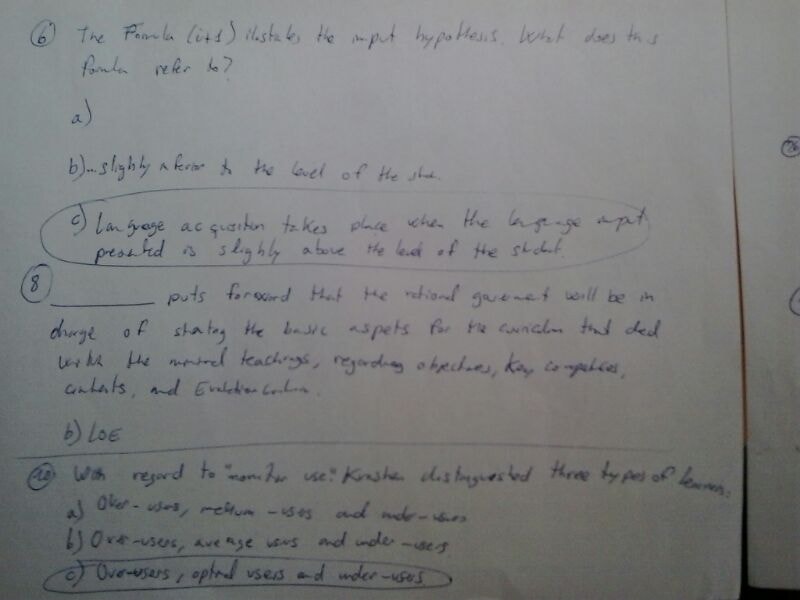 6 The Formula (i+1) ilustrates the input hypothesis. What does this
formula refer to?
a)
b)... slighly inferior to the level of the stu.
c) Language acquisition takes place when the language input
presented is slighly above the level of the student.
8 __________ puts forward that the national goverment will be in
charge of stating the basic aspets for the curriculum that deal
with the minimal teachings, regarding objectives, key competences,
contents, and Evaluation criteria.
b) LOE
10 With regard to "monitor use": Krashen distingueshed three types of learners:
a) Over-users, medium-users and under-users
b) Over-users, average users and under-users
c) Over-users, optimal users and under-users